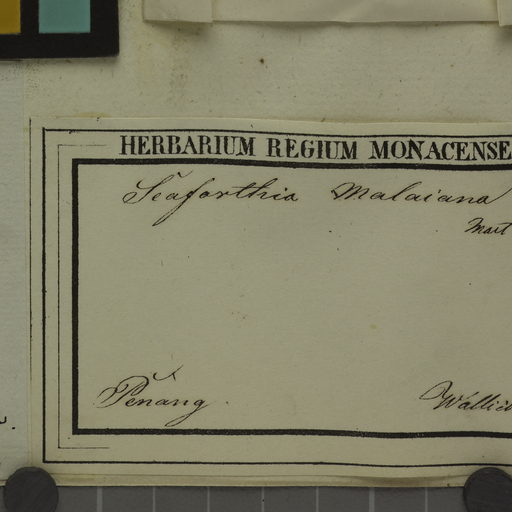 HERBARIUM REGIUM MONACENSE
Seaforthia Malaiana
Mart
Penang.
Wallich